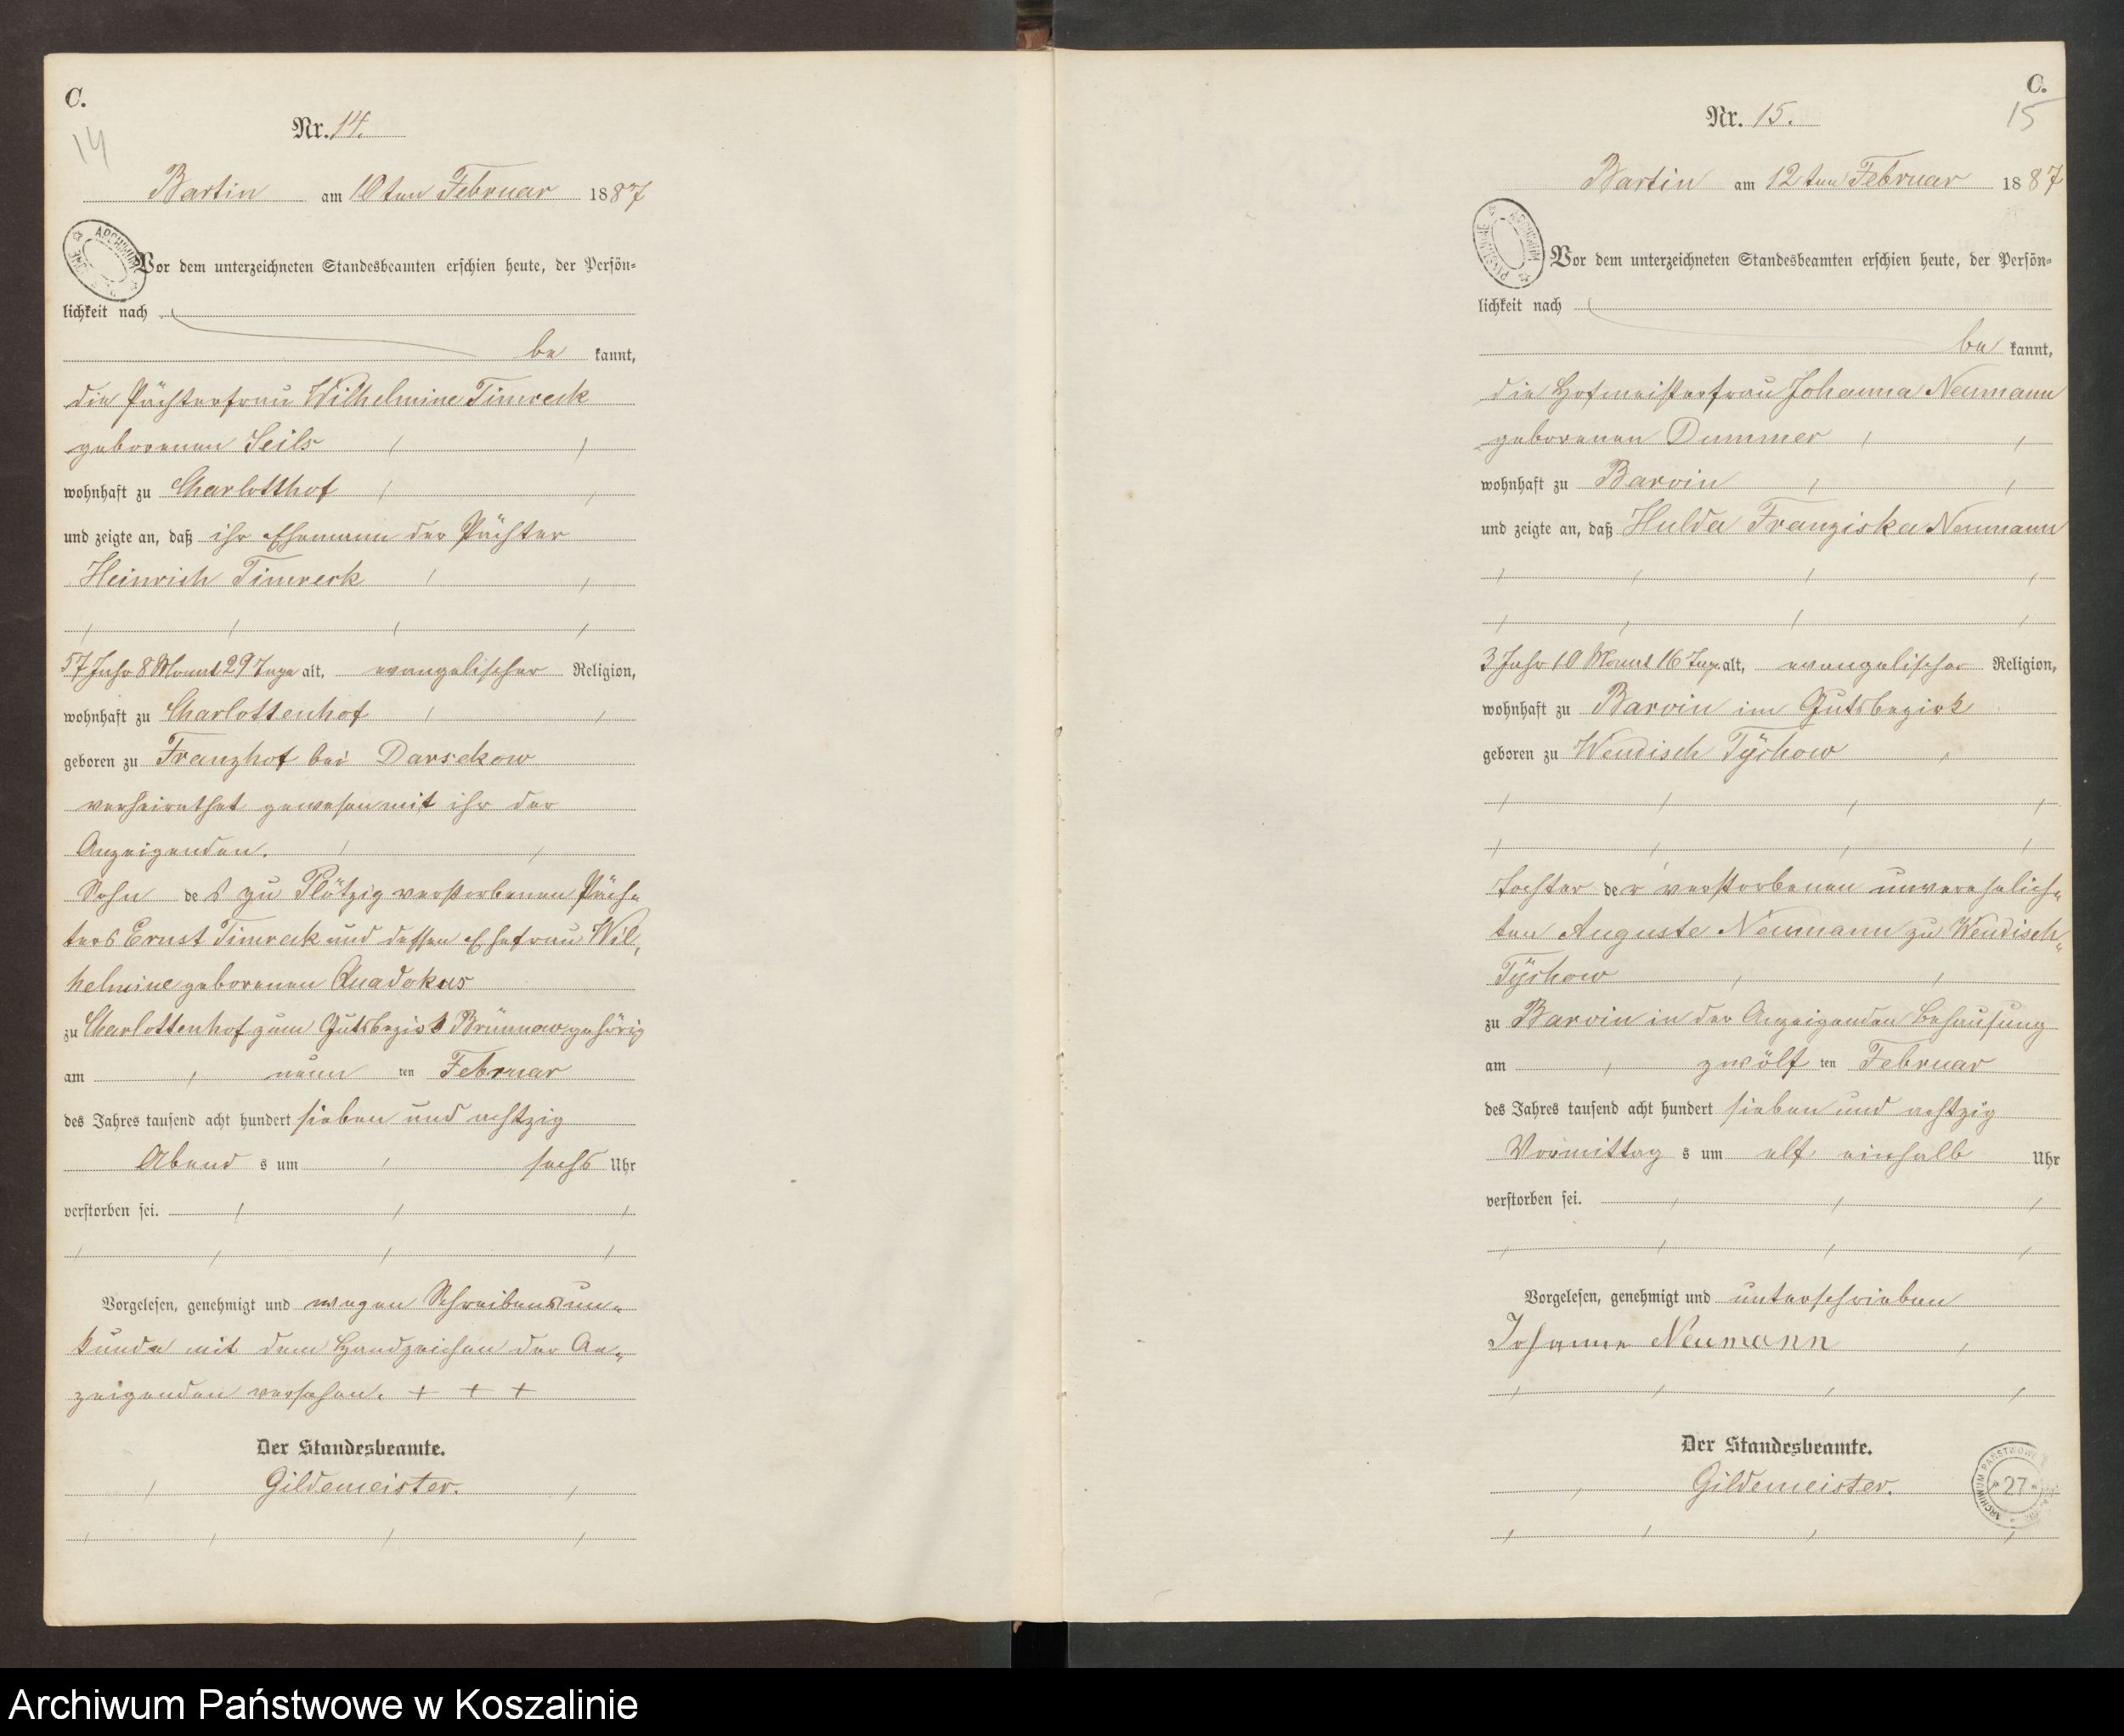 C.
14
Nr. 14.
Bartin am 10ten Februar 1887
Vor dem unterzeichneten Standesbeamten erschien heute, der Persön=
lichkeit nach
be kannt,
die Pächterfrau Wilhelmine Timreck
geborenen Seils
wohnhaft zu Charlotthof
und zeigte an, daß ihr Ehemann der Pächter
Heinrich Timreck
57 Jahr 8 Monat 29 Tage alt, evangelischer Religion,
wohnhaft zu Charlottenhof
geboren zu Franzhof bei Darsekow
verheirathet gewesen mit ihr der
Anzeigenden.
Sohn des zu Plötzig verstorbenen Päch=
ters Ernst Timreck und dessen Ehefrau Wil=
helmine geborenen Quadokus
zu Charlottenhof zum Gutsbezirk Brünnow gehörig
am neun ten Februar
des Jahres tausend acht hundert sieben und achtzig
Abend s um sechs Uhr
verstorben sei.
Vorgelesen, genehmigt und wegen Schreibensun=
kunde mit dem Handzeichen der An=
zeigenden versehen. + + +
Der Standesbeamte.
Gildemeister.
C.
15
Nr. 15.
Bartin am 12ten Februar 1887
Vor dem unterzeichneten Standesbeamten erschien heute, der Persön=
lichkeit nach
be kannt,
die Hofmeisterfrau Johanna Neumann
geborenen Dummer
wohnhaft zu Barvin
und zeigte an, daß Hulda Franziska Neumann
3 Jahr 10 Monat 16 Tage alt, evangelischer Religion,
wohnhaft zu Barvin im Gutsbezirk
geboren zu Wendisch Tÿchow
Tochter der verstorbenen unverehelich=
ten Auguste Neumann zu Wendisch=
Tÿchow
zu Barvin in der Anzeigenden Behausung
am zwölf ten Februar
des Jahres tausend acht hundert sieben und achtzig
Vormittag s um elf einhalb Uhr
verstorben sei.
Vorgelesen, genehmigt und unterschrieben
Johanne Neumann
Der Standesbeamte.
Gildemeister.
ARCHIWUM PAŃSTWOWE
27
Archiwum Państwowe w Koszalinie